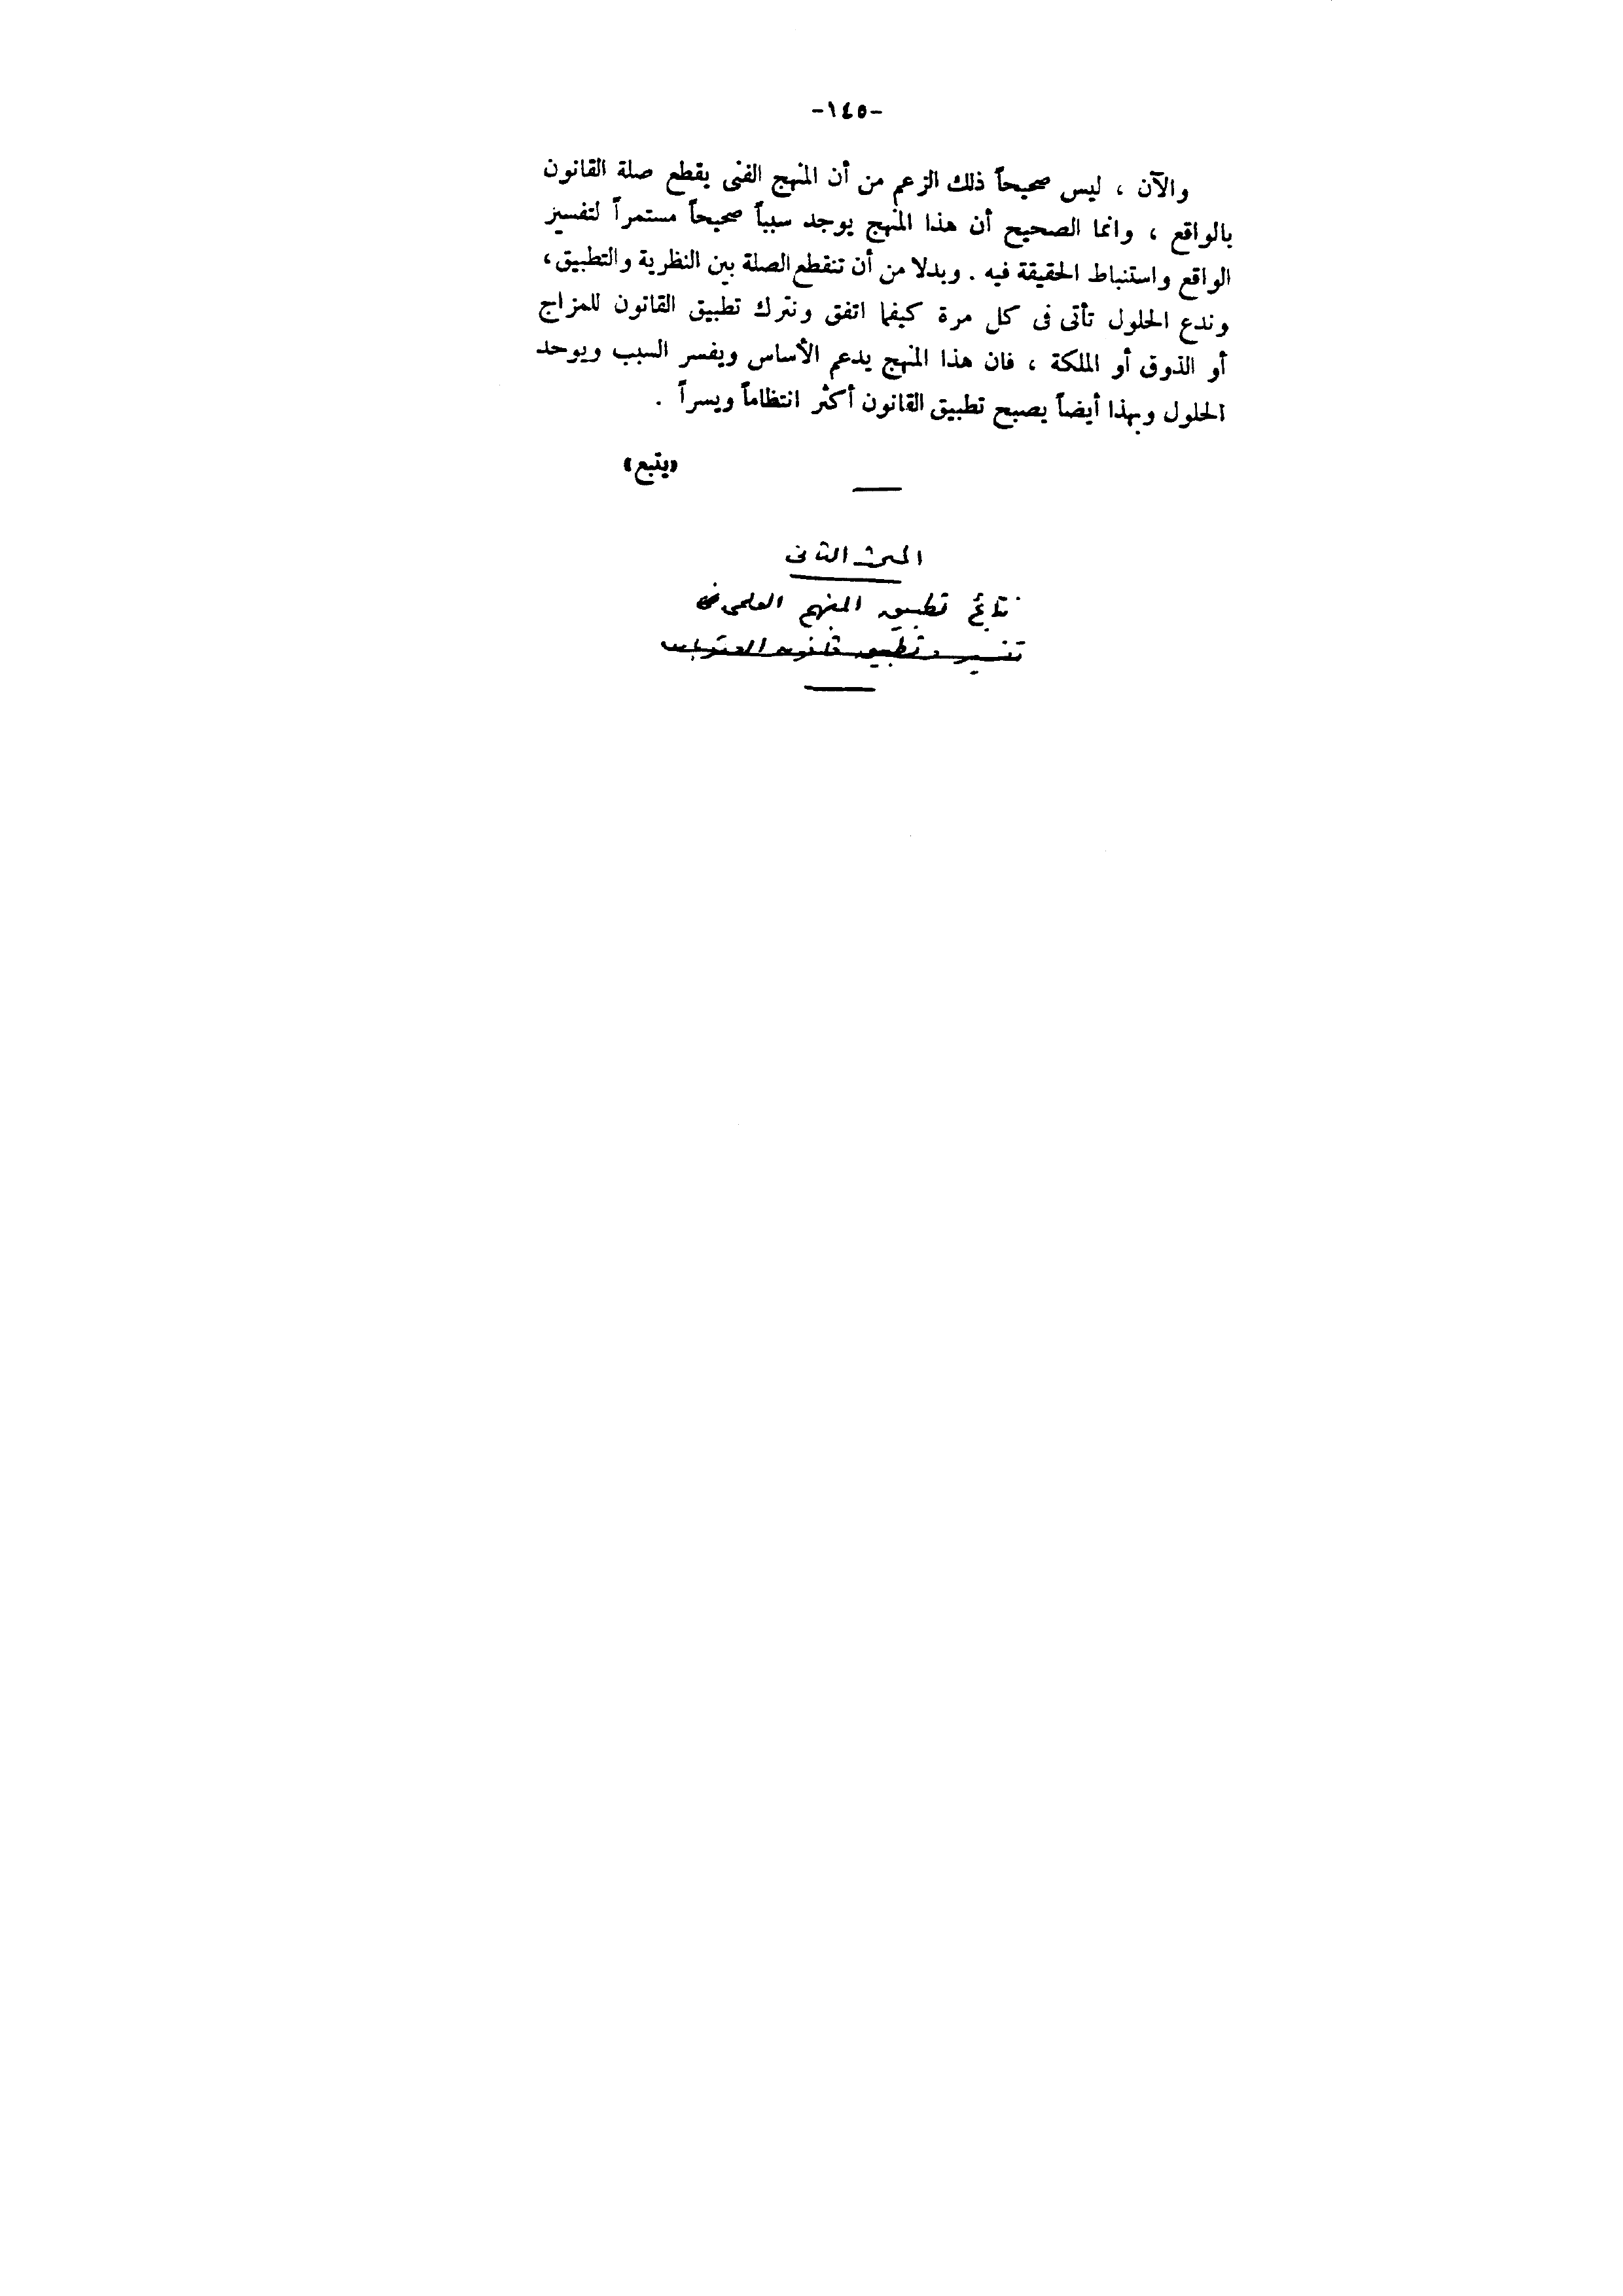 -١٤٥-
والآن ، ليس صحيحاً ذلك الزعم من أن المنهج الفنى يقطع صلة القانون
بالواقع ، وانما الصحيح أن هذا المنهج يوجد سبباً صحيحاً مستمراً لتفسير
الواقع واستنباط الحقيقة فيه . وبدلا من أن تنقطع الصلة بين النظرية والتطبيق،
وندع الحلول تأتى فى كل مرة كيفما اتفق ونترك تطبيق القانون للمزاج
أو الذوق أو الملكة ، فان هذا المنهج يدعم الأساس ويفسر السبب ويوحد
الحلول وبهذا أيضاً يصبح تطبيق القانون أكثر انتظاماً ويسراً .
«يتبع»
المبحث الثانى
نتائج تطبيق المنهج العلمى فى
تفسير وتطبيق قانون العقوبات